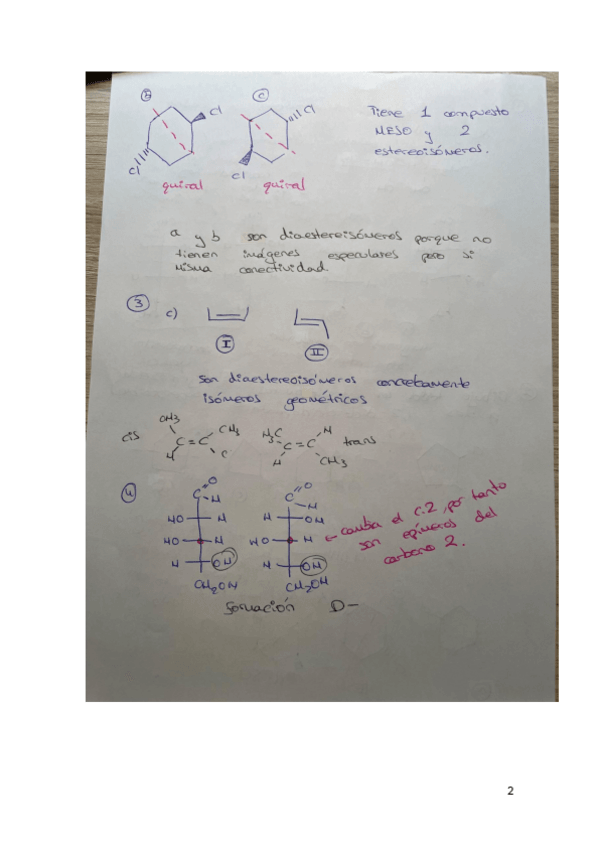 b c
Cl Cl
Cl Cl
quiral quiral
Tiene 1 compuesto
MESO y 2
estereoisómeros.
a y b son diaestereisómeros porque no
tienen imágenes especulares pero si
misma conectividad.
3 c)
I II
son diaestereoisómeros concretamente
isómeros geométricos
cis CH3 C=C CH3 H C H3C C=C H H CH3 trans
4
C O H C O H
HO H H OH
HO H HO H
H OH H OH
CH2OH CH2OH
← cambia el c.2, por tanto
son epímeros del
carbono 2.
D-
2